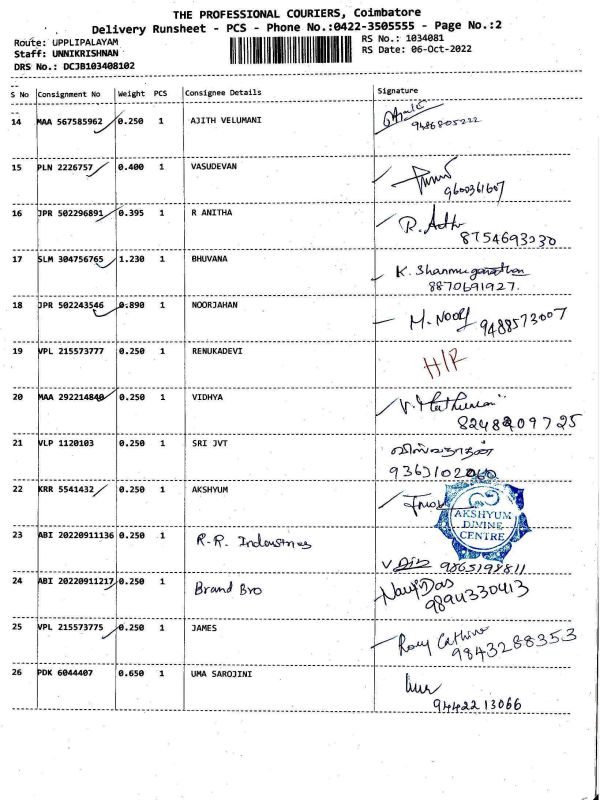 THE PROFESSIONAL COURIERS, Coimbatore
Delivery Runsheet - PCS - Phone No.:0422-3505555 - Page No.:2
Route: UPPLIPALAYAM
RS No.: 1034081
Staff: UNNIKRISHNAN
RS Date: 06-Oct-2022
DRS No.: DCJB103408102
S No Consignment No Weight PCS Consignee Details Signature
14 MAA 567585962 0.250 1 AJITH VELUMANI
9486805222
15 PLN 2226757 0.400 1 VASUDEVAN
9600361607
16 JPR 502296891 0.395 1 R ANITHA
8754693030
17 SLM 304756765 1.230 1 BHUVANA K. Shanmuganathan
8870691927.
18 JPR 502243546 0.890 1 NOORJAHAN M. Noor
9488573007
19 VPL 215573777 0.250 1 RENUKADEVI H/R
20 MAA 292214840 0.250 1 VIDHYA
21 VLP 1120103 0.250 1 SRI JVT விஸ்வநாதன்
22 KRR 5541432 0.250 1 AKSHYUM
AKSHYUM
DIVINE
CENTRE
23 ABI 20220911136 0.250 1 R.R. Industries
9865198811
24 ABI 20220911217 0.250 1 Brand Bro
9894330413
25 VPL 215573775 0.250 1 JAMES
9843288353
26 PDK 6044407 0.650 1 UMA SAROJINI
9442213066